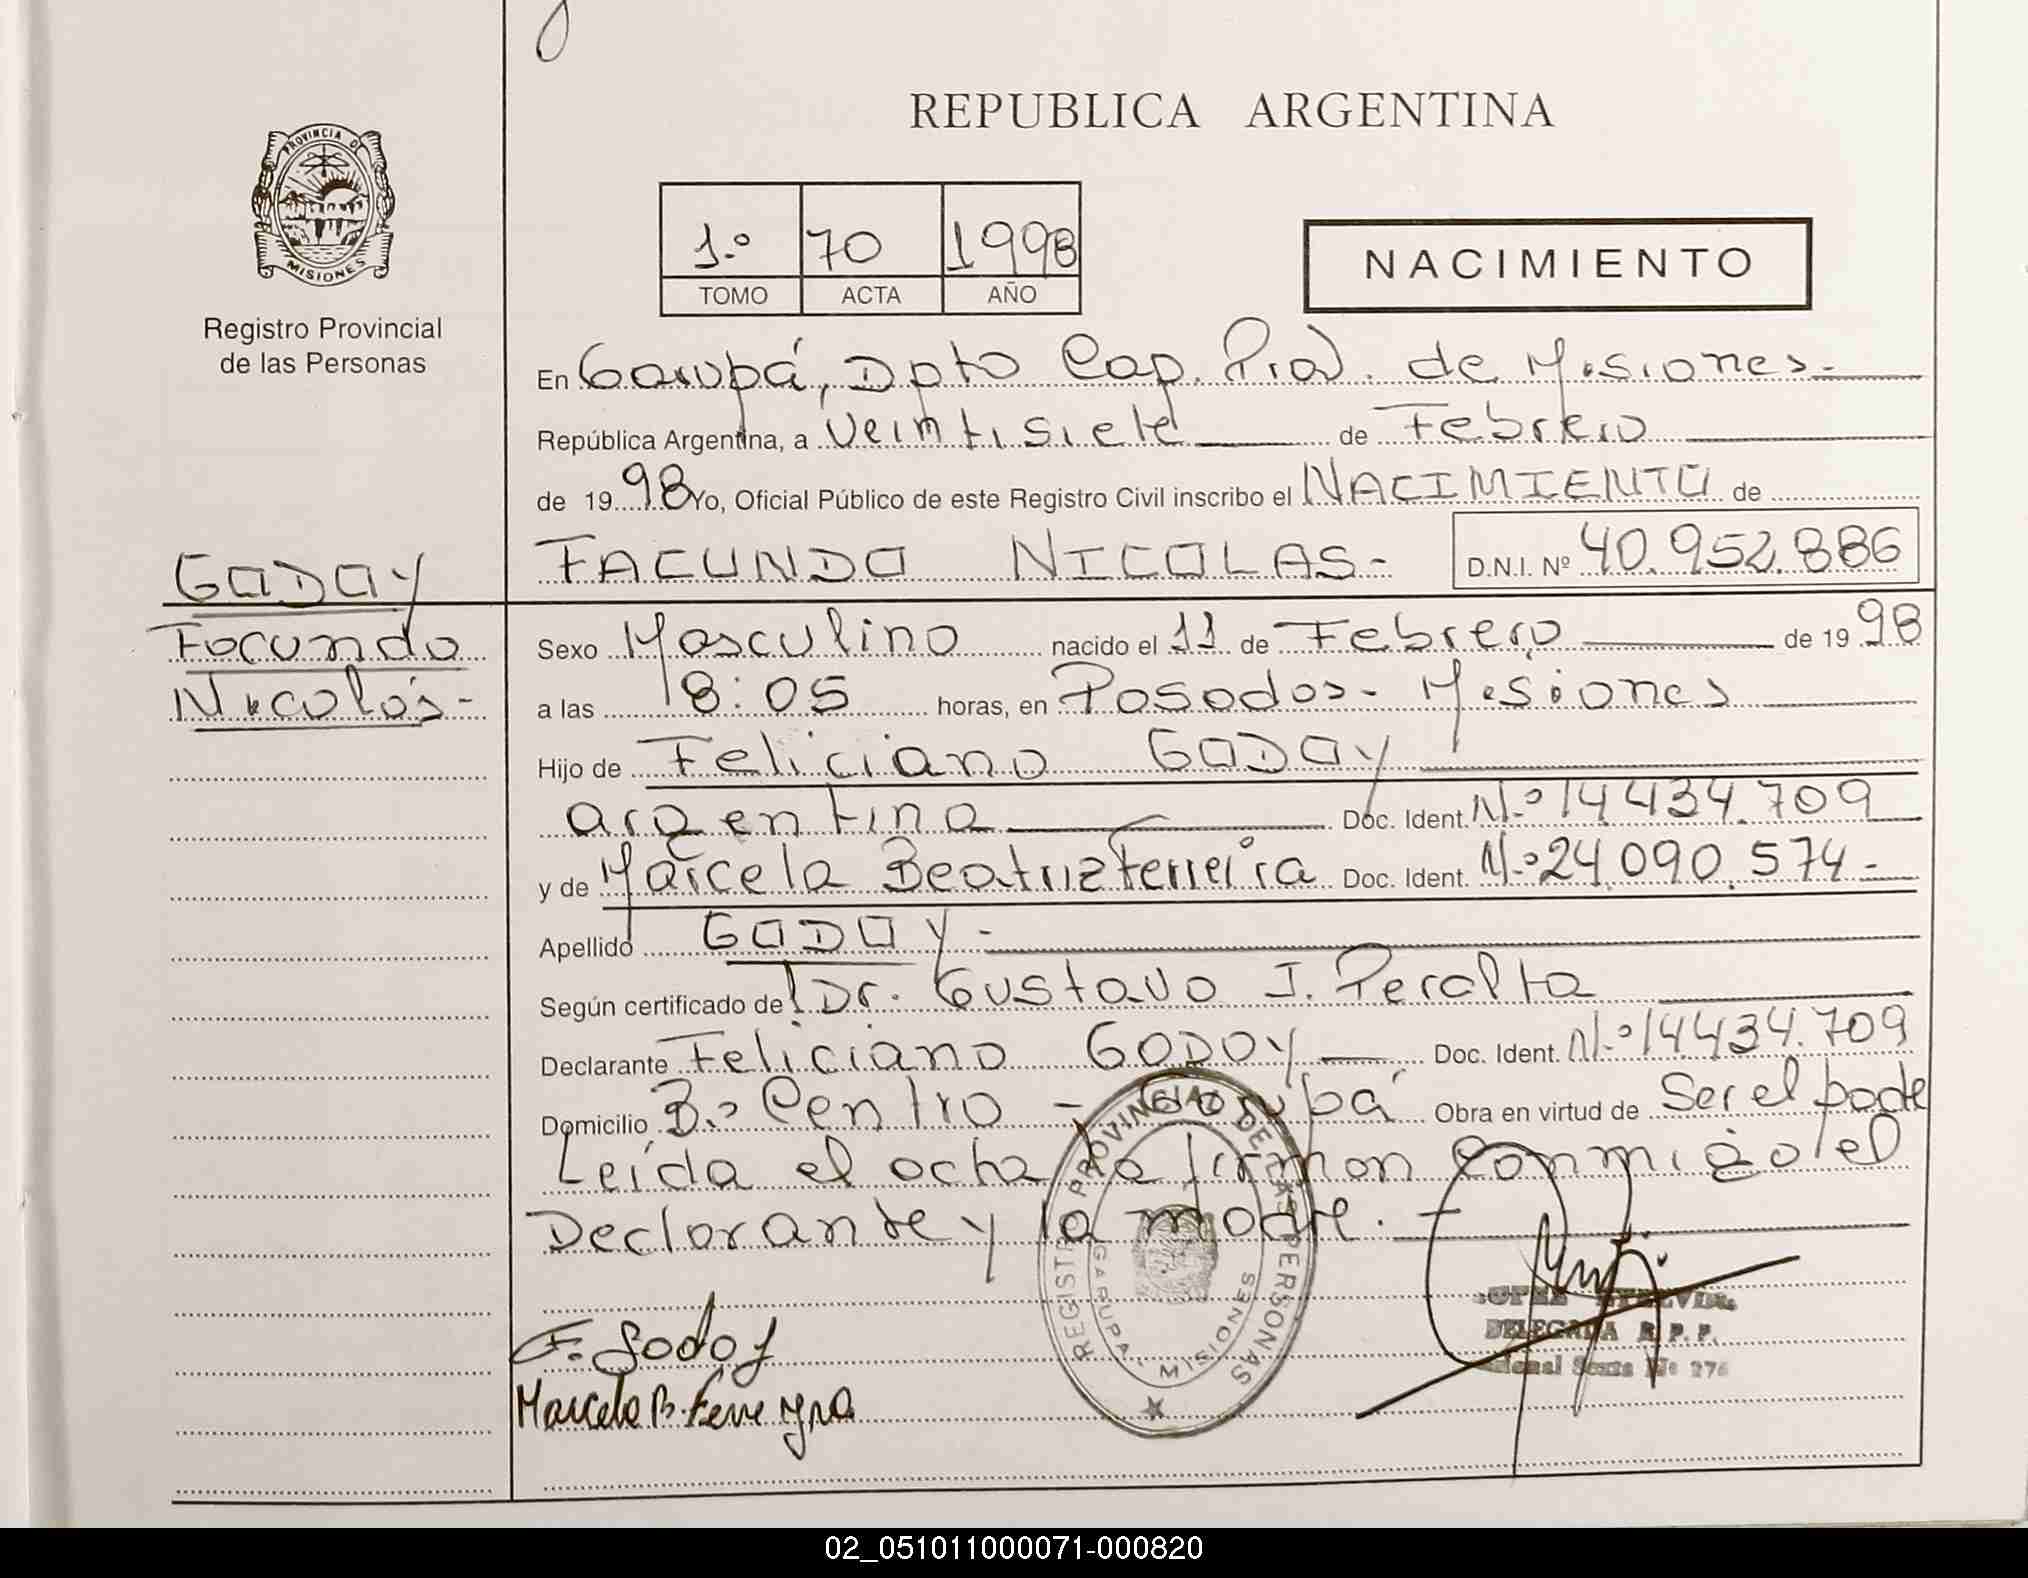 REPUBLICA ARGENTINA
PROVINCIA DE
MISIONES
Registro Provincial
de las Personas
1.º 70 1998
TOMO ACTA AÑO
NACIMIENTO
En Garupá, Dpto Cap. Prov. de Misiones.-
República Argentina, a Veintisiete de Febrero
de 19 98 Yo, Oficial Público de este Registro Civil inscribo el NACIMIENTO de
FACUNDO NICOLAS- D.N.I. Nº 40.952.886
GODOY
Facundo
Nicolás-
Sexo Masculino nacido el 11 de Febrero de 19 98
a las 18:05 horas, en Posadas- Misiones
Hijo de Feliciano GODOY
argentina Doc. Ident. N.º 14.434.709
y de Marcela Beatriz Ferreira Doc. Ident. N.º 24.090.574-
Apellido GODOY-
Según certificado del Dr. Gustavo J. Peralta
Declarante Feliciano GODOY Doc. Ident. N.º 14.434.709
Domicilio B.º Centro - Garupá Obra en virtud de Ser el padre
Leída el acta la firman conmigo el
Declarante y la madre. -
REGISTRO PROVINCIAL DE LAS PERSONAS
GARUPA - MISIONES
DELEGADA R. P. P.
Nº 276
F. Godoy
Marcela B. Ferreyra
02_051011000071-000820